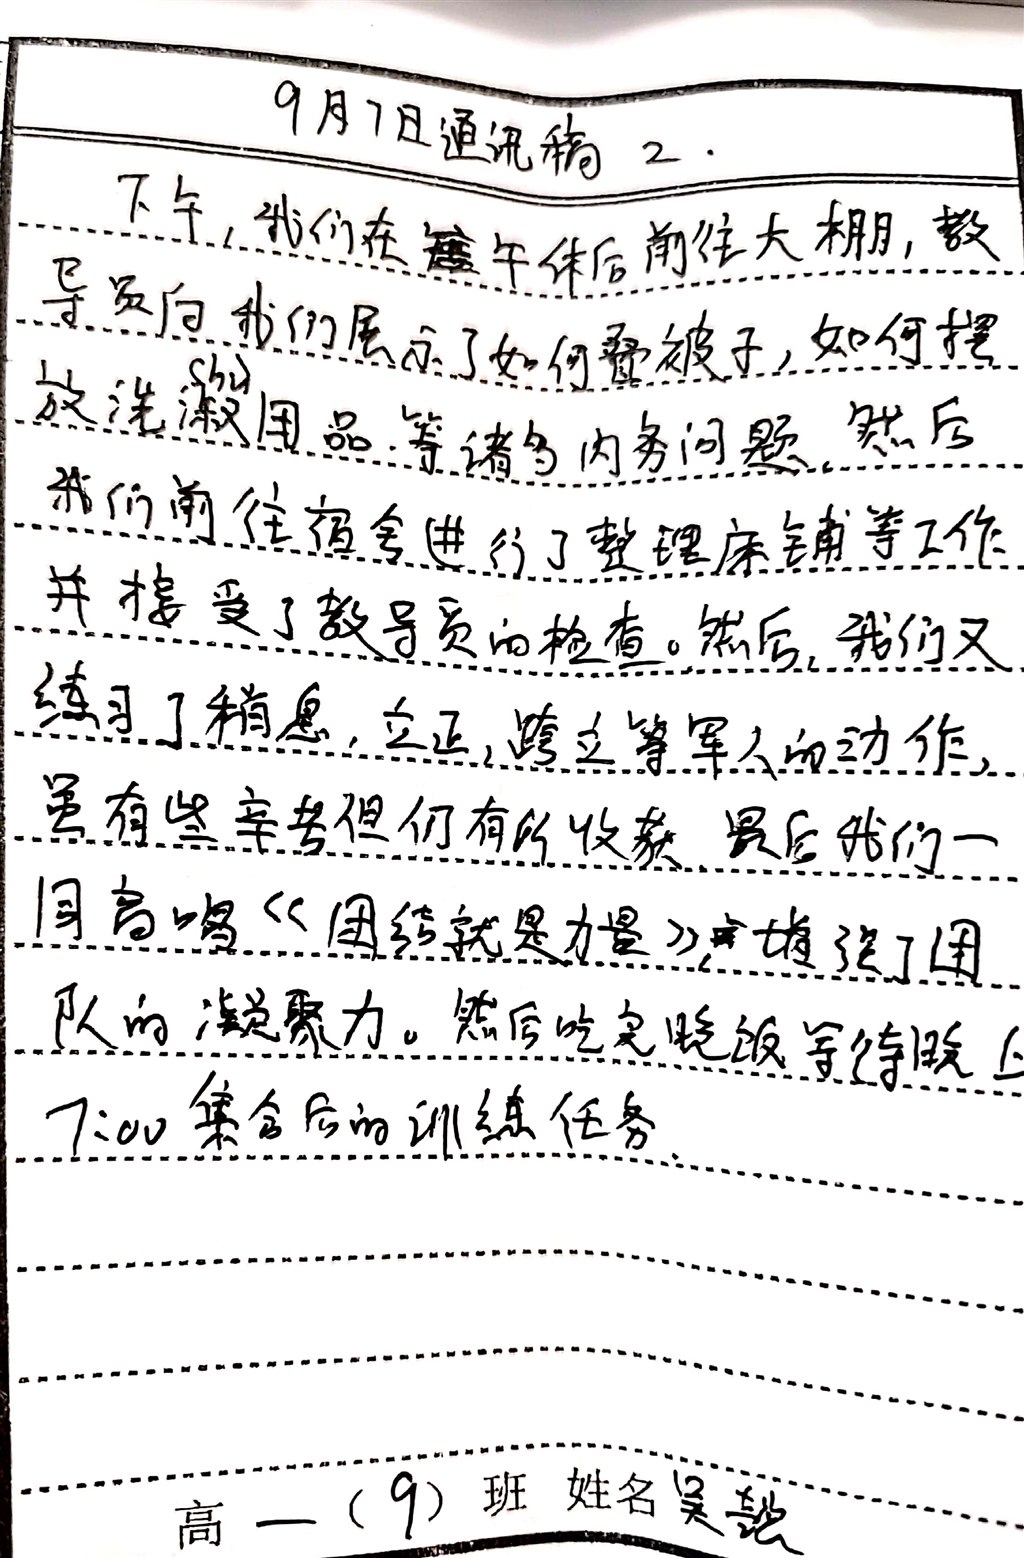 9月7日通讯稿 2.
下午,我们在午休后前往大棚,教
导员向我们展示了如何叠被子,如何摆
放洗漱(shu)用品等诸多内务问题,然后
我们前往宿舍进行了整理床铺等工作
并接受了教导员的检查。然后,我们又
练习了稍息,立正,跨立等军人的动作,
虽有些辛苦但仍有所收获.最后我们一
同高唱《团结就是力量》,增强了团
队的凝聚力。然后吃完晚饭等待晚上
7:00集合后的训练任务.
高一(9)班 姓名吴